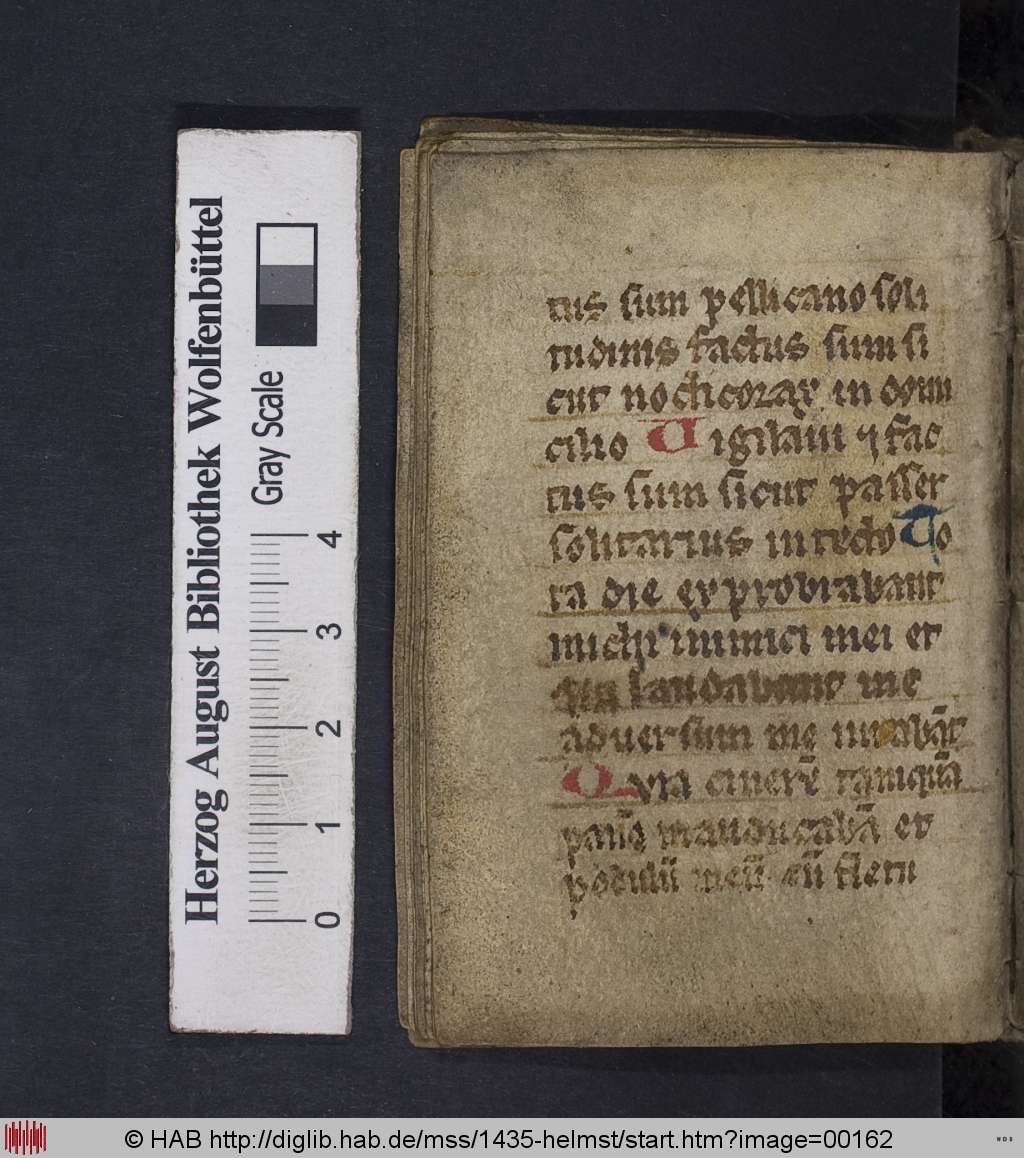 tus sum pellicano soli
tudinis factus sum si
cut nocticorax in domi
cilio Uigilaui ⁊ fac
tus sum sicut passer
solitarius in tecto To
ta die exprobrabant
michi inimici mei et
qui laudabant me
aduersum me iurabāt
Quia cinerē tamquā
panē manducabā et
poculū meū cū fletu
Herzog August Bibliothek Wolfenbüttel
Gray Scale
0 1 2 3 4
© HAB http://diglib.hab.de/mss/1435-helmst/start.htm?image=00162